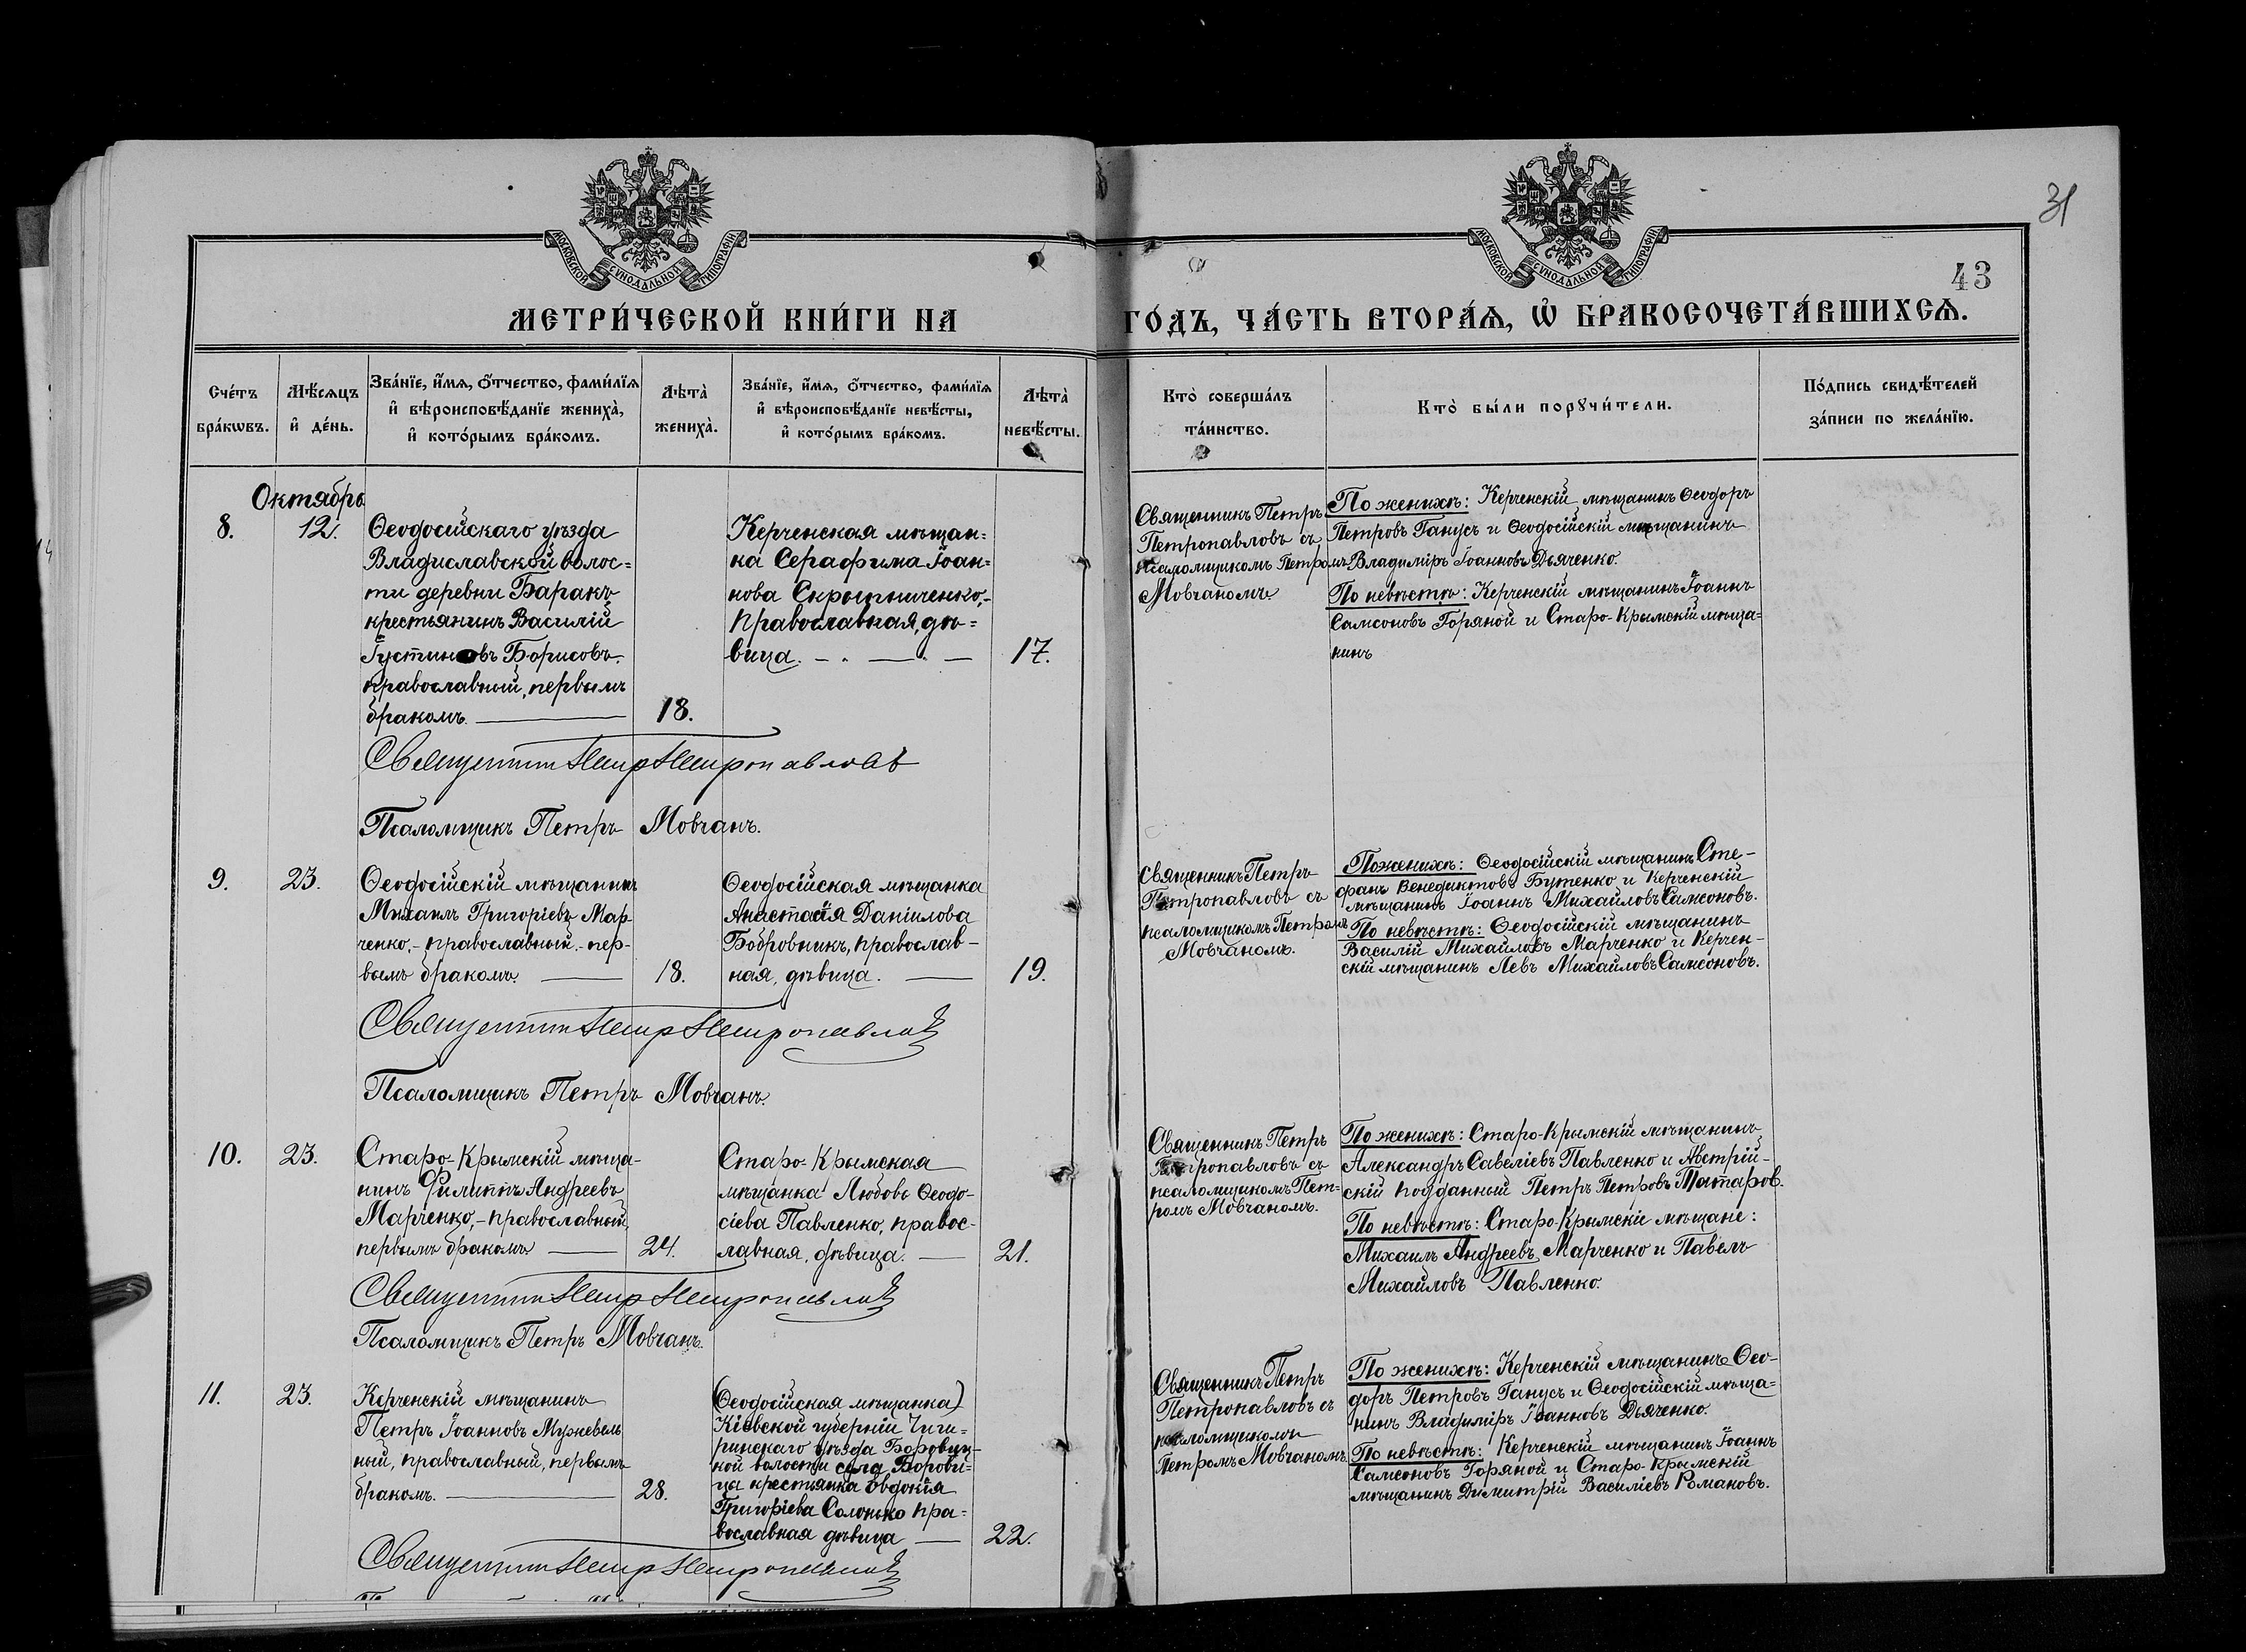 31
43
МОСКОВСКОЙ СѴНОДАЛЬНОЙ ТИПОГРАФІИ
МОСКОВСКОЙ СѴНОДАЛЬНОЙ ТИПОГРАФІИ
МЕТРИ́ЧЕСКОЙ КНИ́ГИ НА ГО́ДЪ, ЧА́СТЬ ВТОРА́Ѧ, Ѽ БРАКОСОЧЕТА́ВШИХСѦ.
Сче́тъ
бра́кѡвъ.
Мѣ́сѧцъ
и҆ де́нь.
Зва́нїе, и҆́мѧ, ѻ҆́тчество, фами́лїѧ
и҆ вѣроисповѣ́данїе жениха̀,
и҆ кото́рымъ бра́комъ.
Лѣта̀
жениха̀.
Зва́нїе, и҆́мѧ, ѻ҆́тчество, фами́лїѧ
и҆ вѣроисповѣ́данїе невѣ́сты,
и҆ кото́рымъ бра́комъ.
Лѣта̀
невѣ́сты.
Кто̀ соверша́лъ
та́инство.
Кто̀ бы́ли порꙋчи́тели.
По́дпись свидѣ́телей
за́писи по жела́нїю.
Октябрь
8.
12.
Ѳеодосійскаго уѣзда
Владиславской волос=
ти деревни Баракъ
крестьянинъ Василій
Густиновъ Борисовъ.
православный, первымъ
бракомъ.
18.
Керченская мѣщан=
ка Серафима Іоан=
нова Скрыпниченко,-
православная, дѣ=
вица.
17.
Священникъ Петръ
Петропавловъ съ
псаломщикомъ Петромъ
Мовчаномъ.
По женихѣ: Керченскій мѣщанинъ Ѳеодоръ
Петровъ Ганусъ и Ѳеодосійскій мѣщанинъ
Владиміръ Іоанновъ Дьяченко.
По невѣстѣ: Керченскій мѣщанинъ Іоаннъ
Самсоновъ Горяной и Старо-Крымскій мѣща=
нинъ
Священникъ Петръ Петропавловъ
Псаломщикъ Петръ Мовчанъ.
9.
23.
Ѳеодосійскій мѣщанинъ
Михаилъ Григоріевъ Мар-
ченко,- православный,- пер-
вымъ бракомъ.
18.
Ѳеодосійская мѣщанка
Анастасія Даніилова
Бобровникъ, православ-
ная, дѣвица.
19.
Священникъ Петръ
Петропавловъ съ
псаломщикомъ Петромъ
Мовчаномъ.
По женихѣ: Ѳеодосійскій мѣщанинъ Сте-
фанъ Венедиктовъ Бутенко и Керченскій
мѣщанинъ Іоаннъ Михайловъ Самсоновъ.
По невѣстѣ: Ѳеодосійскій мѣщанинъ
Василій Михайловъ Марченко и Керчен-
скій мѣщанинъ Левъ Михайловъ Самсоновъ.
Священникъ Петръ Петропавловъ
Псаломщикъ Петръ Мовчанъ.
10.
23.
Старо-Крымскій мѣща-
нинъ Филиппъ Андреевъ
Марченко,- православный,
первымъ бракомъ
24.
Старо-Крымская
мѣщанка Любовь Ѳеодо-
сіева Павленко, правос-
лавная, дѣвица.
21.
Священникъ Петръ
Петропавловъ съ
псаломщикомъ Пет=
ромъ Мовчаномъ.
По женихѣ: Старо-Крымскій мѣщанинъ
Александръ Савеліевъ Павленко и Австрій-
скій подданный Петръ Петровъ Татаров.
По невѣстѣ: Старо-Крымскіе мѣщане:
Михаилъ Андреевъ Марченко и Павелъ
Михайловъ Павленко.
Священникъ Петръ Петропавловъ
Псаломщикъ Петръ Мовчанъ.
11.
23.
Керченскій мѣщанинъ
Петръ Іоанновъ Мужевель
ный, православный, первымъ
бракомъ.
28.
(Ѳеодосійская мѣщанка)
Кіевской губерніи Чиги=
ринскаго уѣзда Боровиц-
кой волости села Борови=
ца крестьянка Евдокія
Григоріева Солонько пра=
вославная дѣвица
22.
Священникъ Петръ
Петропавловъ съ
псаломщикомъ
Петромъ Мовчаномъ.
По женихѣ: Керченскій мѣщанинъ Ѳео-
доръ Петровъ Ганусъ и Ѳеодосійскій мѣща=
нинъ Владиміръ Іоанновъ Дьяченко.
По невѣстѣ: Керченскій мѣщанинъ Іоаннъ
Самсоновъ Горяной и Старо-Крымскій
мѣщанинъ Димитрій Василіевъ Романовъ.
Священникъ Петръ Петропавловъ